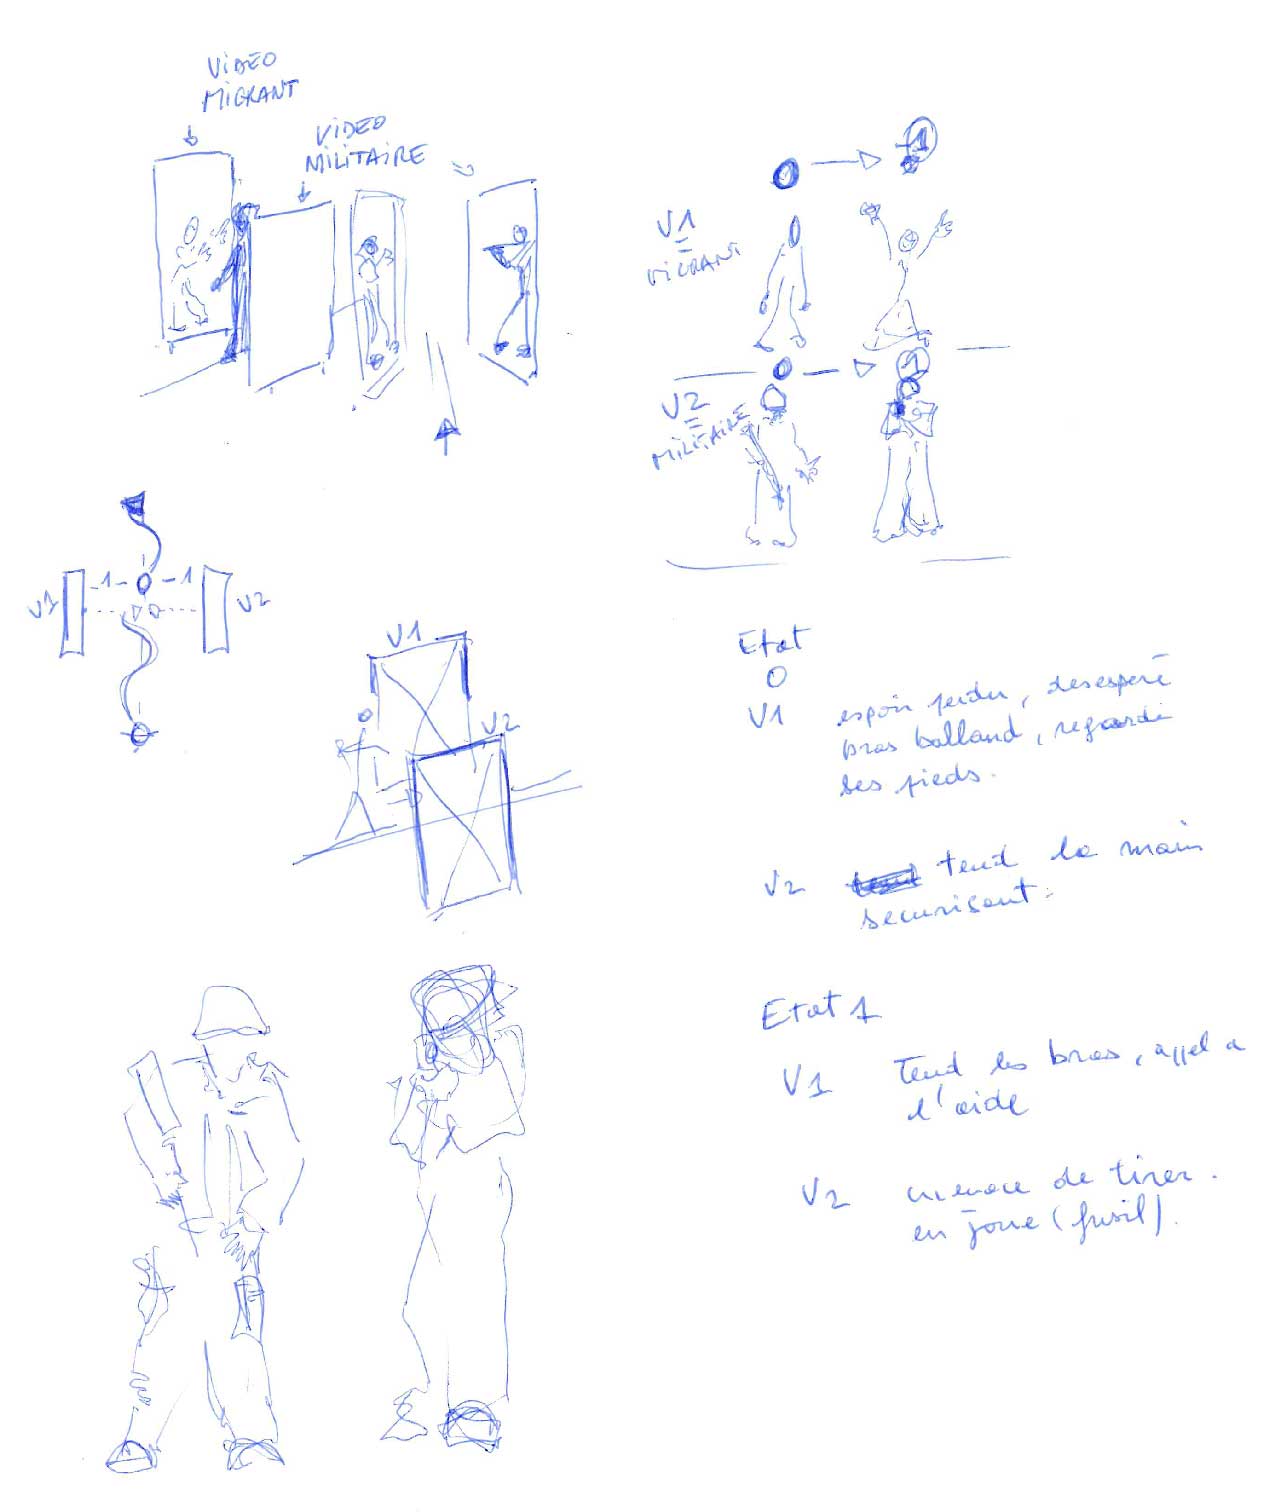 VIDEO
MIGRANT
VIDEO
MILITAIRE
1
V1
=
MIGRANT
1
V2
=
MILITAIRE
V1 -1- -1 V2
V1
V2
Etat
0
V1 espoir perdu, desesperé
bras balland, regarde
ses pieds.
V2 tend la main
securisant.
Etat 1
V1 Tend les bras, appel a
l'aide
V2 menace de tirer.
en joue (fusil).